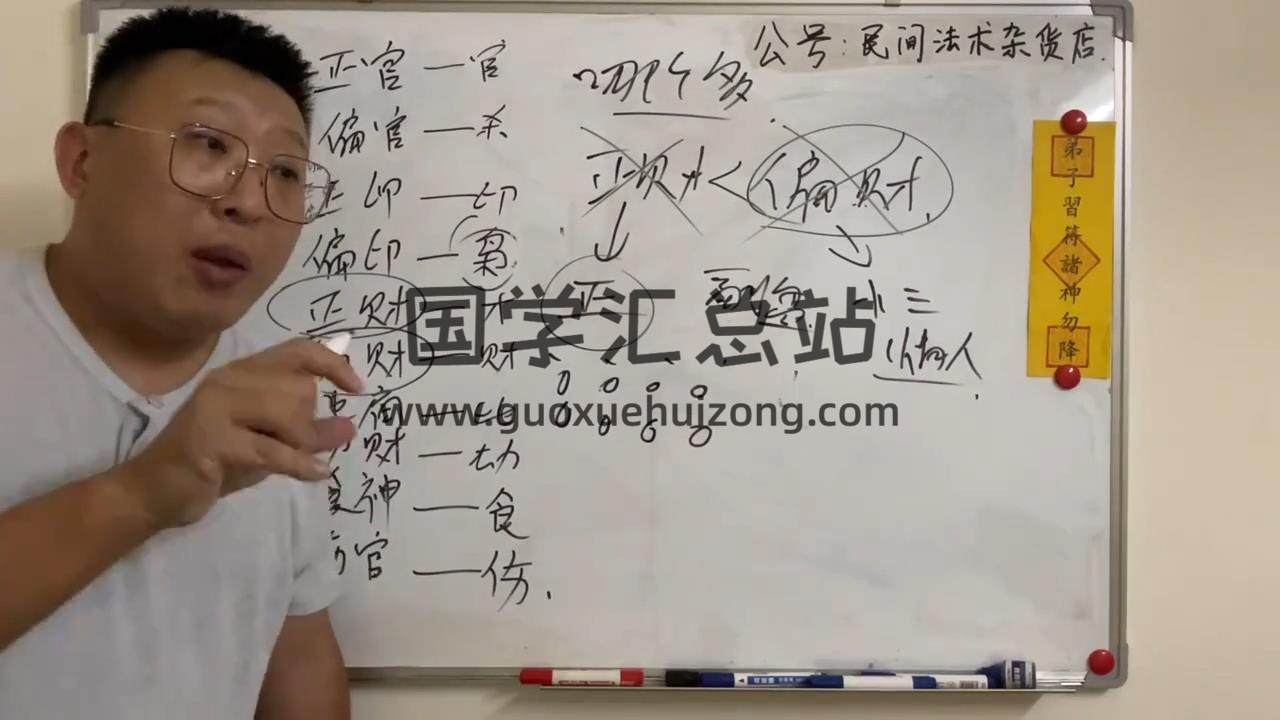 公号:民间法术杂货店.
正官 — 官
偏官 — 杀
正印 — 印
偏印 — 枭
正财 — 才
财 — 财
肩 — 比
财 — 劫
食神 — 食
官 — 伤.
哪个多
正财 < 偏财.
正
小三
国学汇总站
www.guoxuehuizong.com
弟子習符諸神勿降